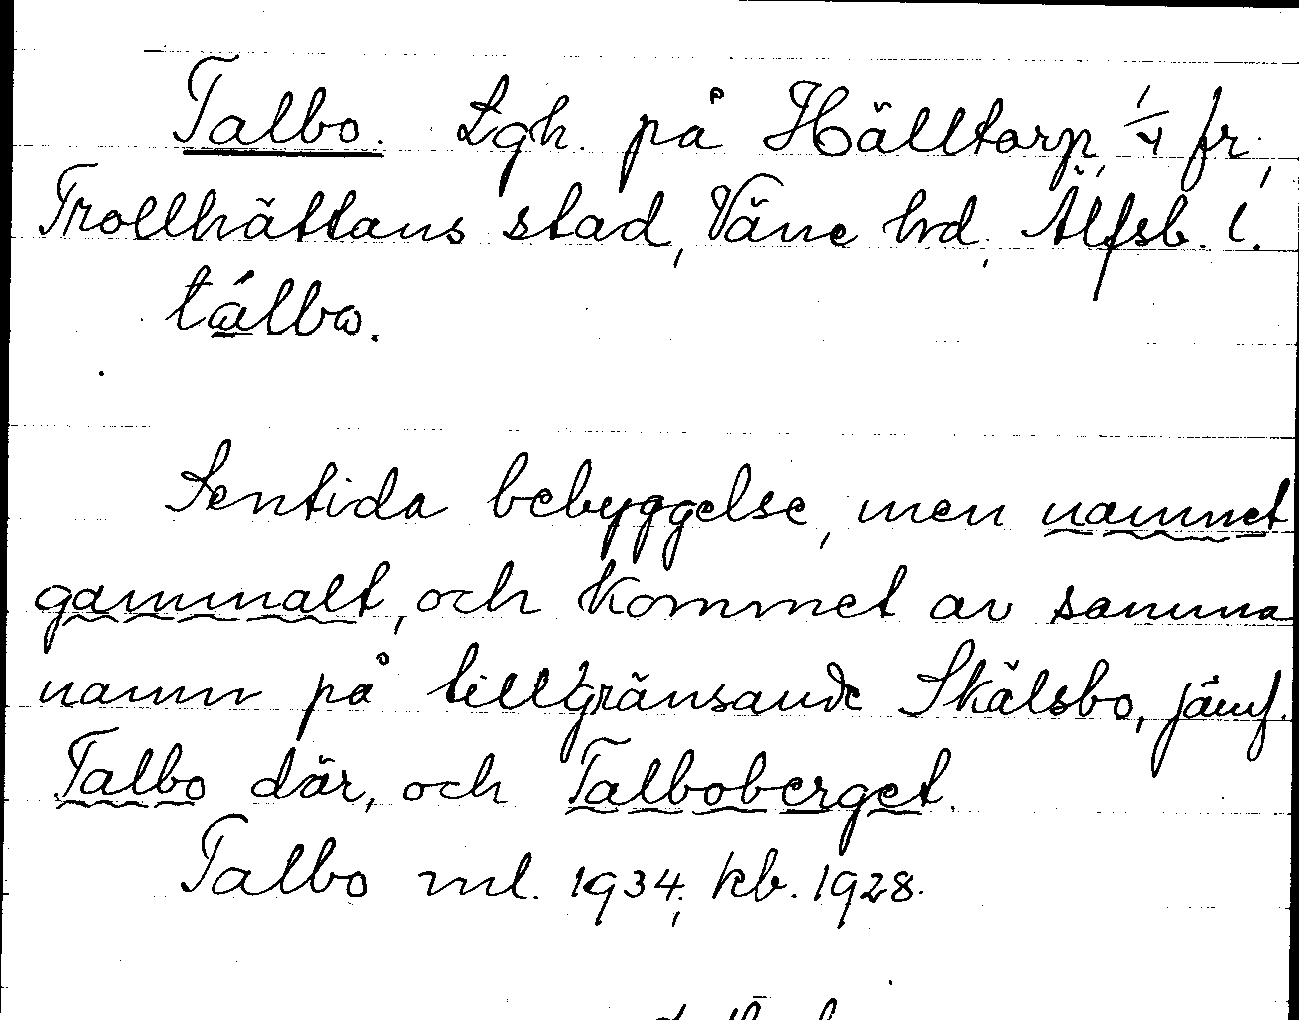 Talbo. Lgh. på Hälltorp, 1/4 fr,
Trollhättans stad, Väne hd, Älfsb. l.
tálbω.
Sentida bebyggelse, men namnet
gammalt, och kommet av samma
namn på tillgränsande Skälsbo, jämf.
Talbo där, och Talboberget.
Talbo ml. 1934, kb. 1928.